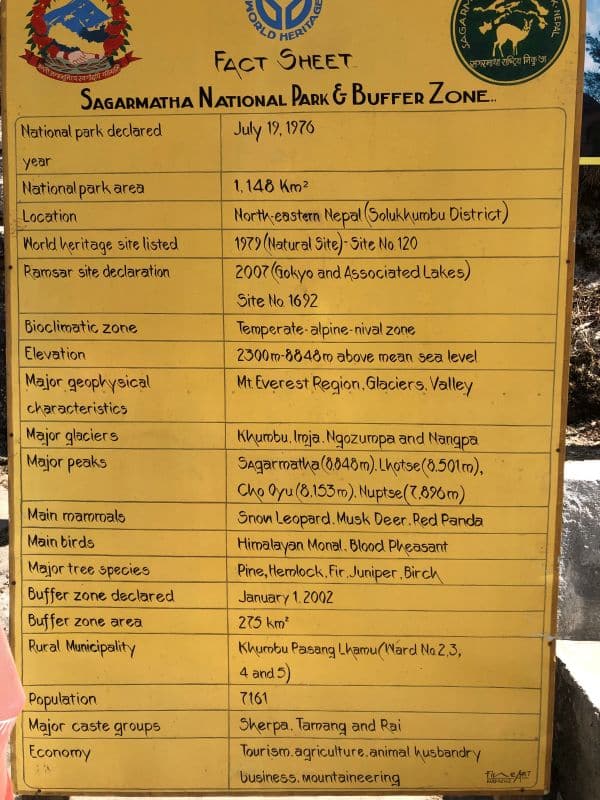 WORLD HERITAGE
SAGARMATHA
NEPAL
सगरमाथा राष्ट्रिय निकुञ्ज
FACT SHEET
SAGARMATHA NATIONAL PARK & BUFFER ZONE..
National park declared July 19, 1976
year
National park area 1,148 Km²
Location North-eastern Nepal (Solukhumbu District)
World heritage site listed 1979 (Natural Site)- Site No. 120
Ramsar site declaration 2007 (Gokyo and Associated Lakes)
Site No 1692
Bioclimatic zone Temperate-alpine-nival zone
Elevation 2300m-8848m above mean sea level
Major geophysical Mt. Everest Region, Glaciers, Valley
characteristics
Major glaciers Khumbu, Imja, Ngozumpa and Nangpa
Major peaks Sagarmatha (8848m), Lhotse (8,501m),
Cho Oyu (8,153m), Nuptse (7,896m)
Main mammals Snow Leopard, Musk Deer, Red Panda
Main birds Himalayan Monal, Blood Pheasant
Major tree species Pine, Hemlock, Fir, Juniper, Birch
Buffer zone declared January 1, 2002
Buffer zone area 275 km²
Rural Municipality Khumbu Pasang Lhamu (Ward No 2,3,
4 and 5)
Population 7161
Major caste groups Sherpa, Tamang and Rai
Economy Tourism, agriculture, animal husbandry
business, mountaineering